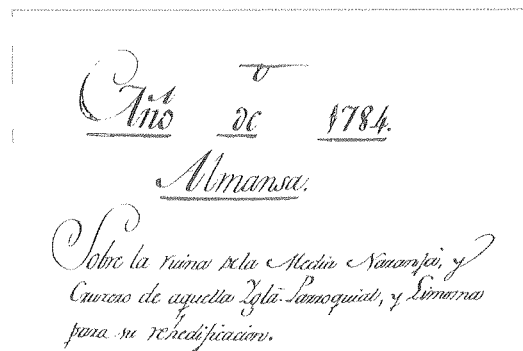 Año de 1784.
Almansa.
Sobre la ruina de la Media Naranja, y
Cruzero de aquella Yglª. Parroquial, y Limosna
para su rehedificacion.